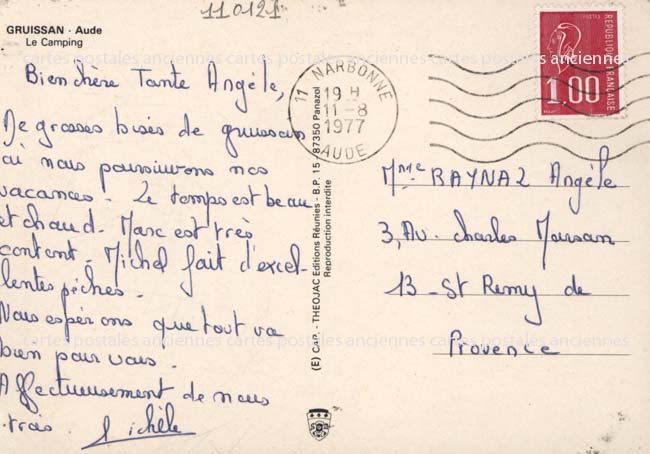 110121
GRUISSAN - Aude
Le Camping
cartes postales anciennes cartes postales anciennes cartes postales anciennes
Bien chère Tante Angèle,
De grosses bises de gruissan
où nous poursuivons nos
vacances. Le temps est beau
et chaud. Marc est très
content. Michel fait d'excel-
lentes pêches.
Nous espérons que tout va
bien pour vous.
Affectueusement de nous
trois. Michèle
(E) CAP. - THEOJAC Editions Réunies - B.P. 15 - 87350 Panazol
Reproduction interdite
11 NARBONNE
19 H
11-8
1977
AUDE
POSTES
REPUBLIQUE FRANÇAISE
1,00
Mme RAYNAL Angèle
3, Av. charles
13 - St Remy de
Provence
cartes postales anciennes cartes postales anciennes cartes postales anciennes